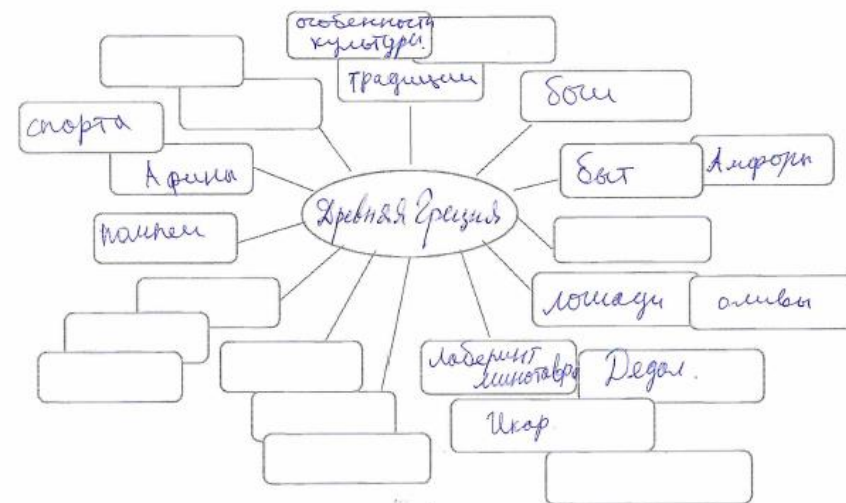 особенности
культуры.
традиции
боги
спорта
Афины
быт
Амфоры
помпеи
Древняя Греция
лошади
оливы
лаберинт
минотавра
Дедал.
Икар